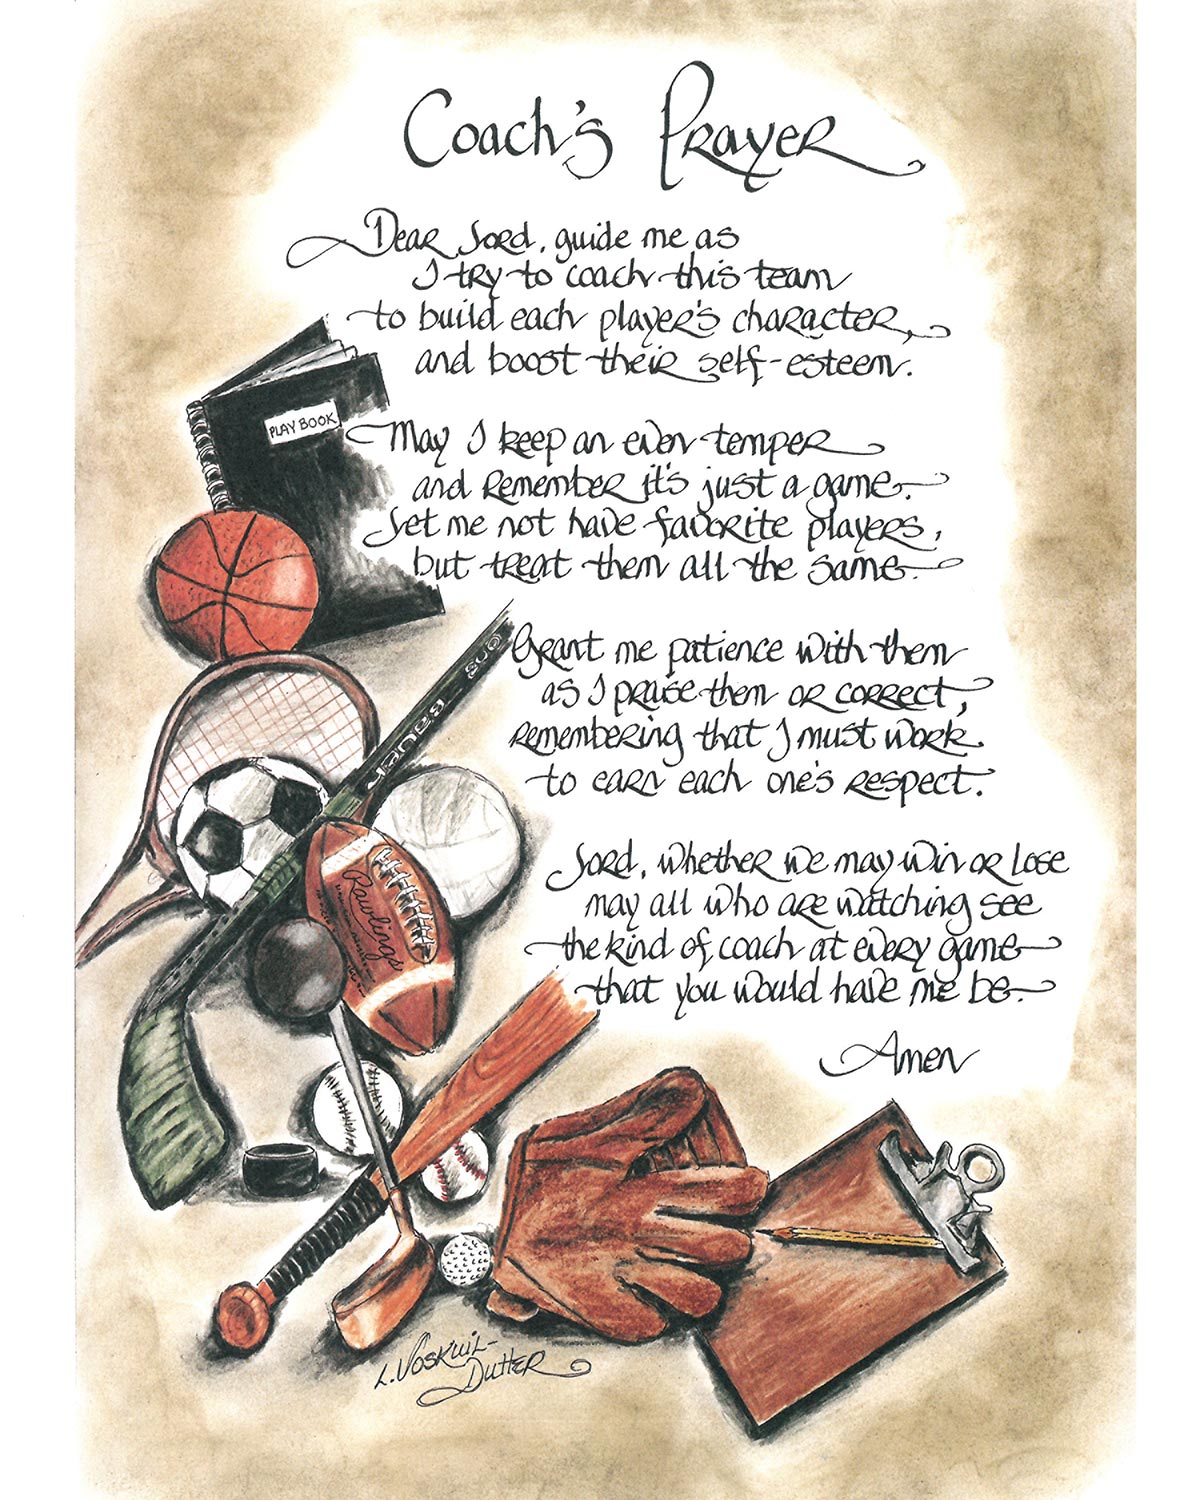 Coach's Prayer
Dear Lord, guide me as
I try to coach this team
to build each player's character,
and boost their self-esteem.
May I keep an even temper
and remember it's just a game.
Let me not have favorite players,
but treat them all the same.
Grant me patience with them
as I praise them or correct,
remembering that I must work
to earn each one's respect.
Lord, whether we may win or lose
may all who are watching see
the kind of coach at every game
that you would have me be.
Amen
PLAY BOOK
BAUER
Rawlings
L. Voskuil-
Dutter